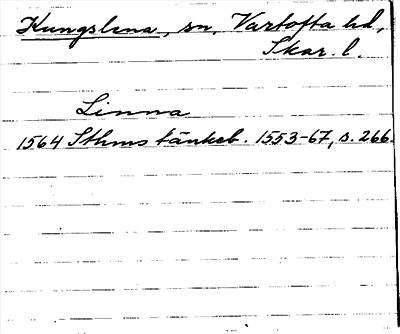 Kungslena, sn, Vartofta hd,
Skar. l.
Linna
1564 Sthms tänkeb. 1553-67, s. 266.